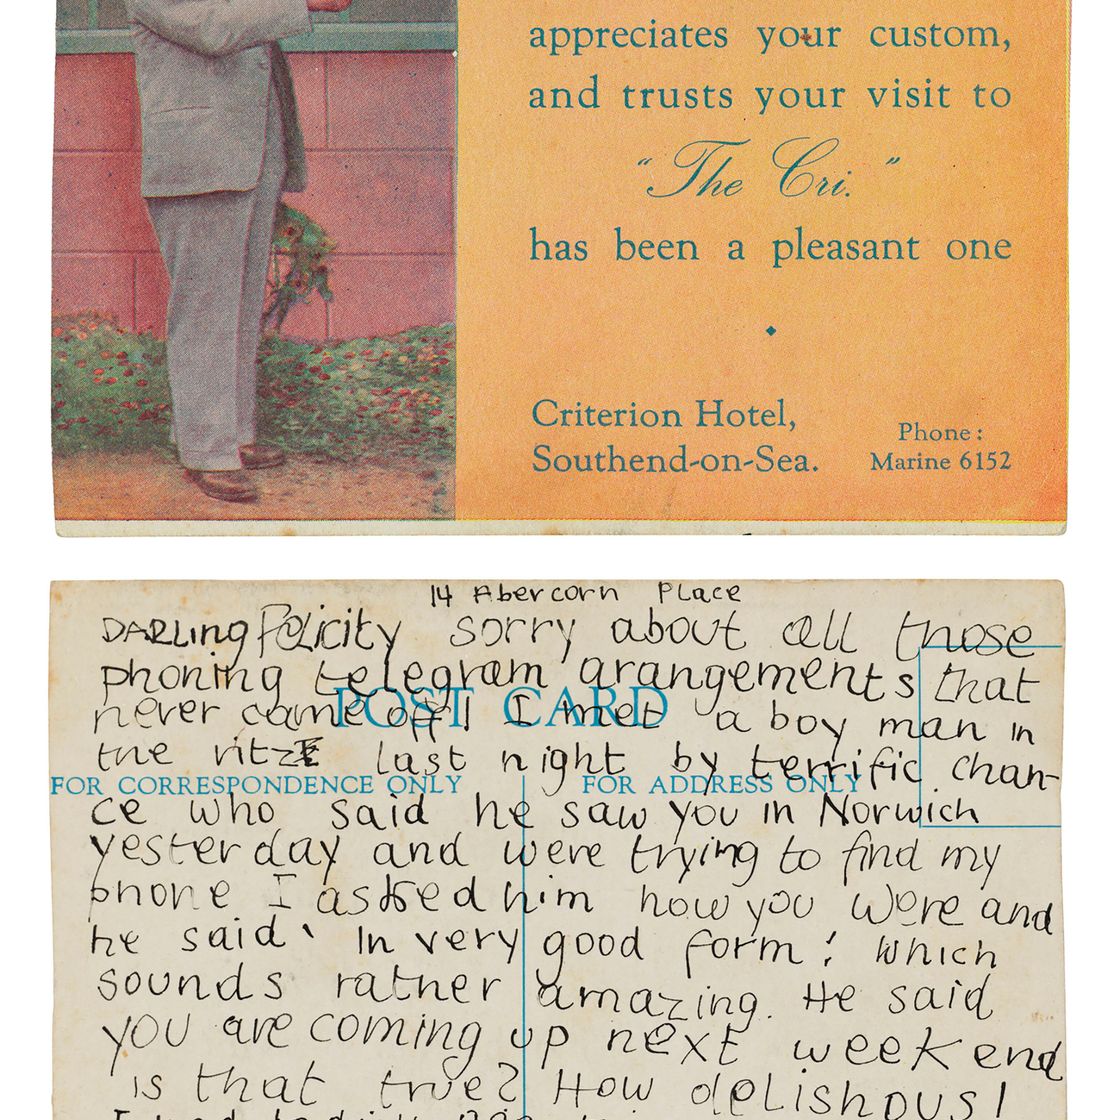 appreciates your custom,
and trusts your visit to
"The Cri."
has been a pleasant one
Criterion Hotel,
Southend-on-Sea.
Phone:
Marine 6152
14 Abercorn Place
DARLing Felicity sorry about all those
phoning telegram arangements that
never came off! I met a boy man in
the ritz last night by terrific chan-
POST CARD
FOR CORRESPONDENCE ONLY
FOR ADDRESS ONLY
ce who said he saw you in Norwich
yesterday and were trying to find my
phone I asked him how you were and
he said ' In very good form ! Which
sounds rather amazing. He said
you are coming up next weekend
is that true? How delishous!